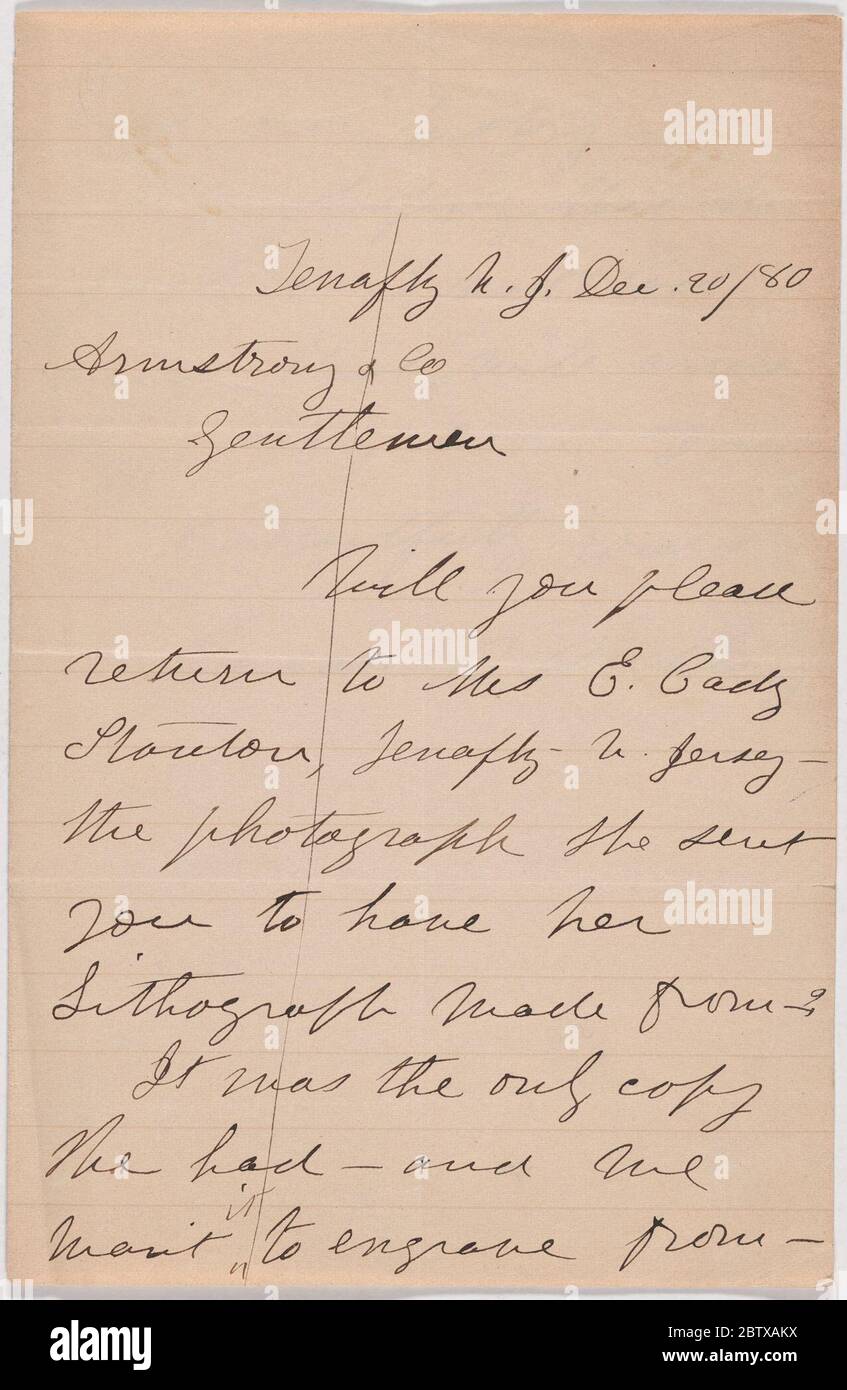 Tenafly N. J. Dec. 20/80
Armstrong & Co
Gentlemen
Will you please
return to Mrs E. Cady
Stanton, Tenafly - N. Jersey -
the photograph she sent
you to have her
Lithograph made from - ?
It was the only copy
she had - and we
want it to engrave from -
alamy
Image ID: 2BTXAKX
www.alamy.com